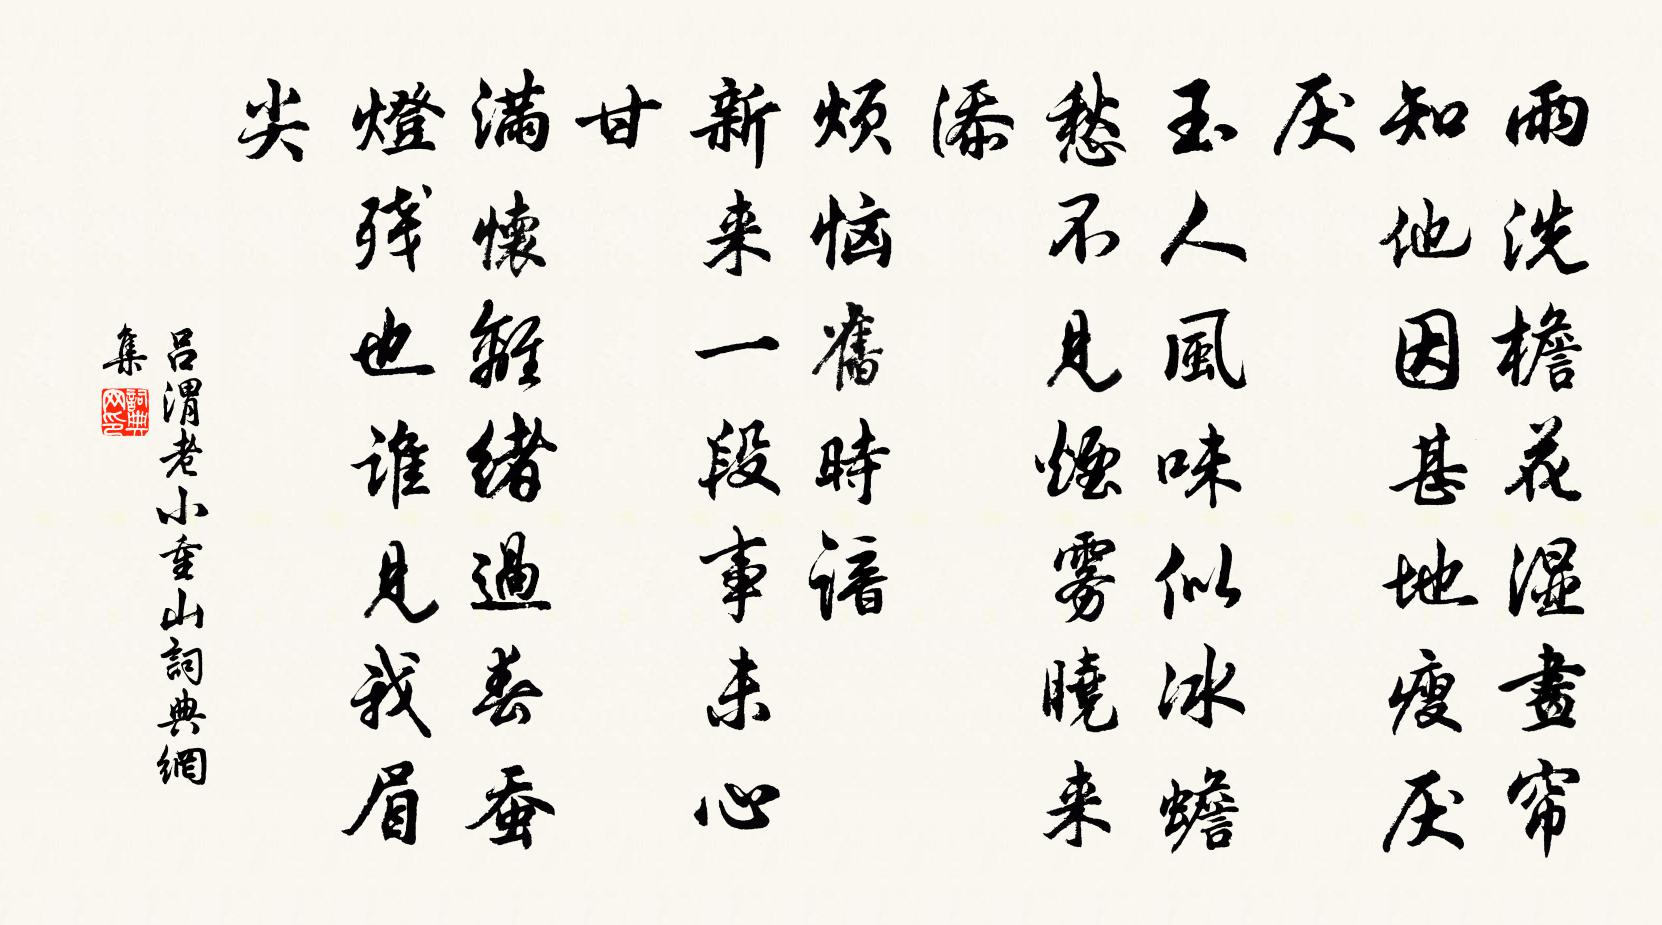 雨洗檐花湿畫帘
知他因甚地瘦厌
厌
玉人風味似冰蟾
愁不見煙雾曉来
添
烦恼舊時谙
新来一段事未心
甘
满懷離緒過春蚕
燈残也谁見我眉
尖
吕渭老小重山詞典網
集
詞典网印